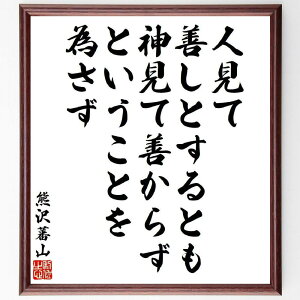 人見て
善しとするとも
神見て善からず
ということを
為さず
熊沢蕃山